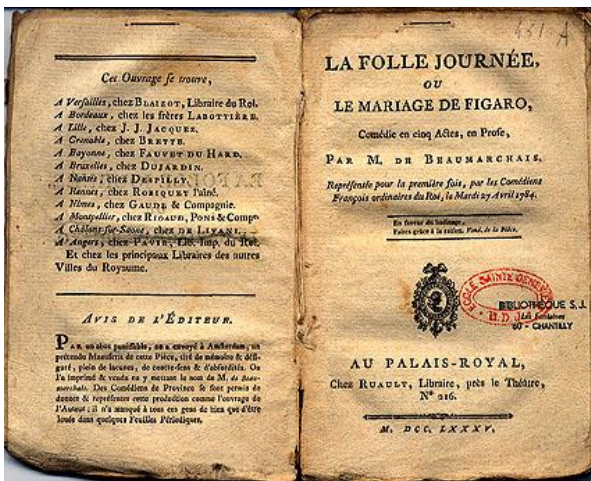 Cet Ouvrage se trouve,
A Versailles, chez BLAIZOT, Libraire du Roi.
A Bordeaux, chez les frères LABOTTIÈRE.
A Lille, chez J. J. JACQUEZ.
A Grenoble, chez BRETTE.
A Bayonne, chez FAUVET DU HARD.
A Bruxelles, chez DUJARDIN.
A Nantes, chez DESPILLY.
A Rennes, chez ROBIQUET l'aîné.
A Nîmes, chez GAUDE & Compagnie.
A Montpellier, chez RIGAUD, PONS & Compᵉ
A Châlons-sur-Saone, chez DE LIVANI.
A Angers, chez PAVIE, Lib. Imp. du Roi.
Et chez les principaux Libraires des autres
Villes du Royaume.
AVIS DE L'ÉDITEUR.
PAR un abus punissable, on a envoyé à Amsterdam, un
prétendu Manuscrit de cette Pièce, tiré de mémoire & défi-
guré, plein de lacunes, de contre-sens & d'absurdités. On
l'a imprimé & vendu en y mettant le nom de M. de Beau-
marchais. Des Comédiens de Province se sont permis de
donner & représenter cette production comme l'ouvrage de
l'Auteur; il n'a manqué à tous ces gens de bien que d'être
loués dans quelques Feuilles Périodiques.
LA FOLLE JOURNÉE,
OU
LE MARIAGE DE FIGARO,
Comédie en cinq Actes, en Prose,
PAR M. DE BEAUMARCHAIS.
Représentée pour la première fois, par les Comédiens
François ordinaires du Roi, le Mardi 27 Avril 1784.
En faveur du badinage,
Faites grâce à la raison. Vaud. de la Pièce.
ECOLE SAINTE GENEVIEVE
B.D.J.
BIBLIOTHEQUE S. J.
Les Fontaines
60 - CHANTILLY
AU PALAIS-ROYAL,
Chez RUAULT, Libraire, près le Théâtre,
N° 216.
M. DCC. LXXXV.